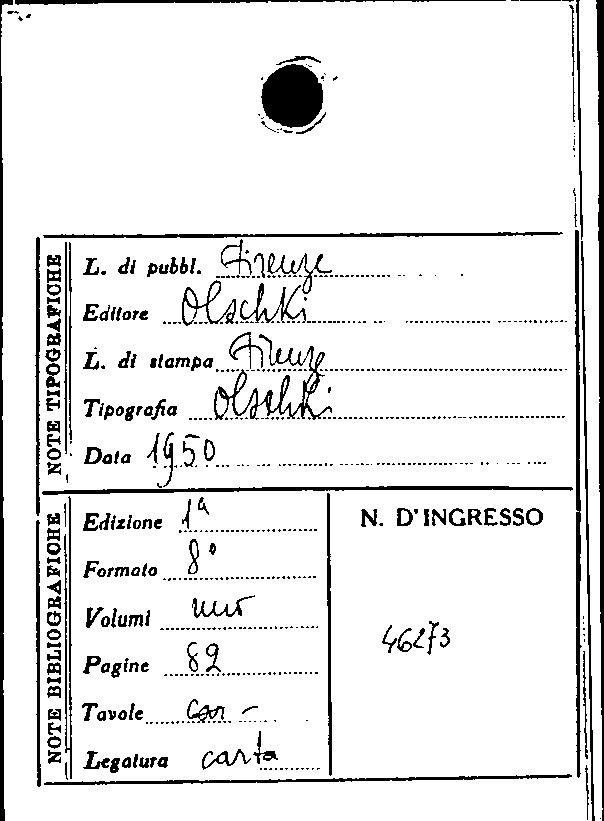 NOTE TIPOGRAFICHE
L. di pubbl. Firenze
Editore Olschki
L. di stampa Firenze
Tipografia Olschki
Data 1950
NOTE BIBLIOGRAFICHE
Edizione 1ª
Formato 8°
Volumi uno
Pagine 82
Tavole -
Legatura carta
N. D'INGRESSO
46273